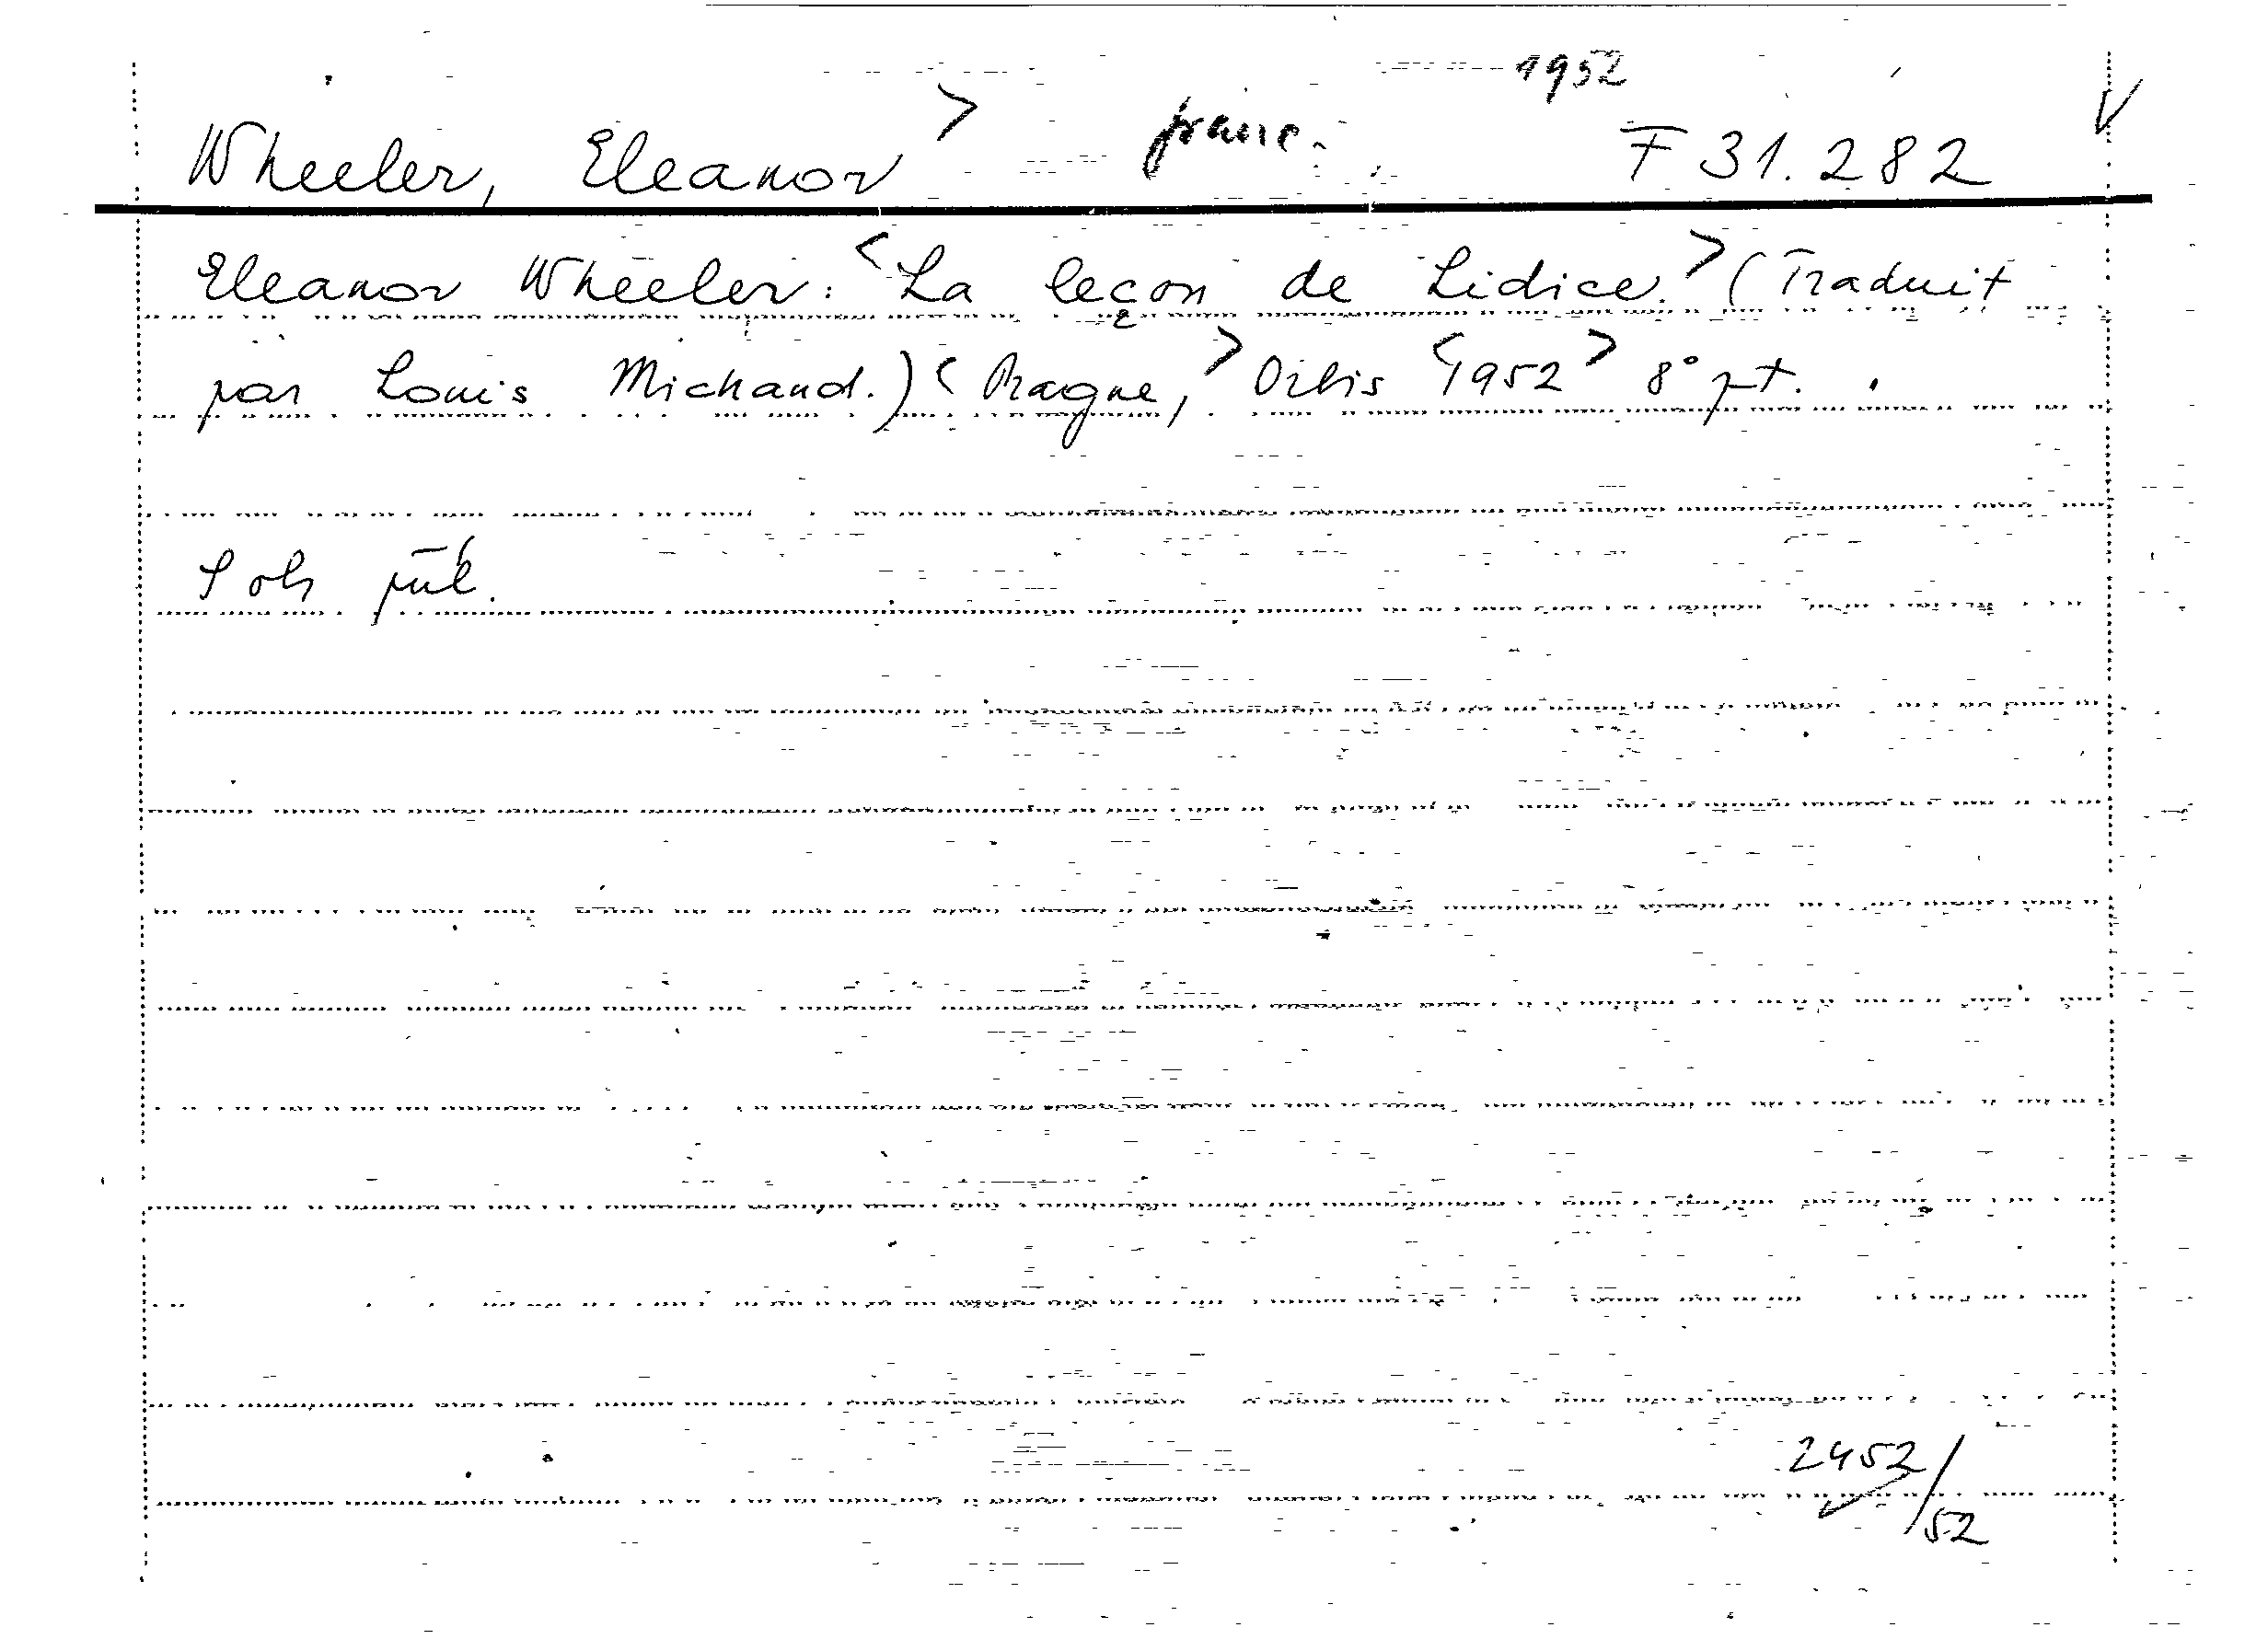 1952
Wheeler, Eleanor> franc. F 31.282
Eleanor Wheeler: <La leçon de Lidice.> (Traduit
par Louis Michaud.) <Prague,> Orbis <1952> 8° pt.
S ob
2452/52